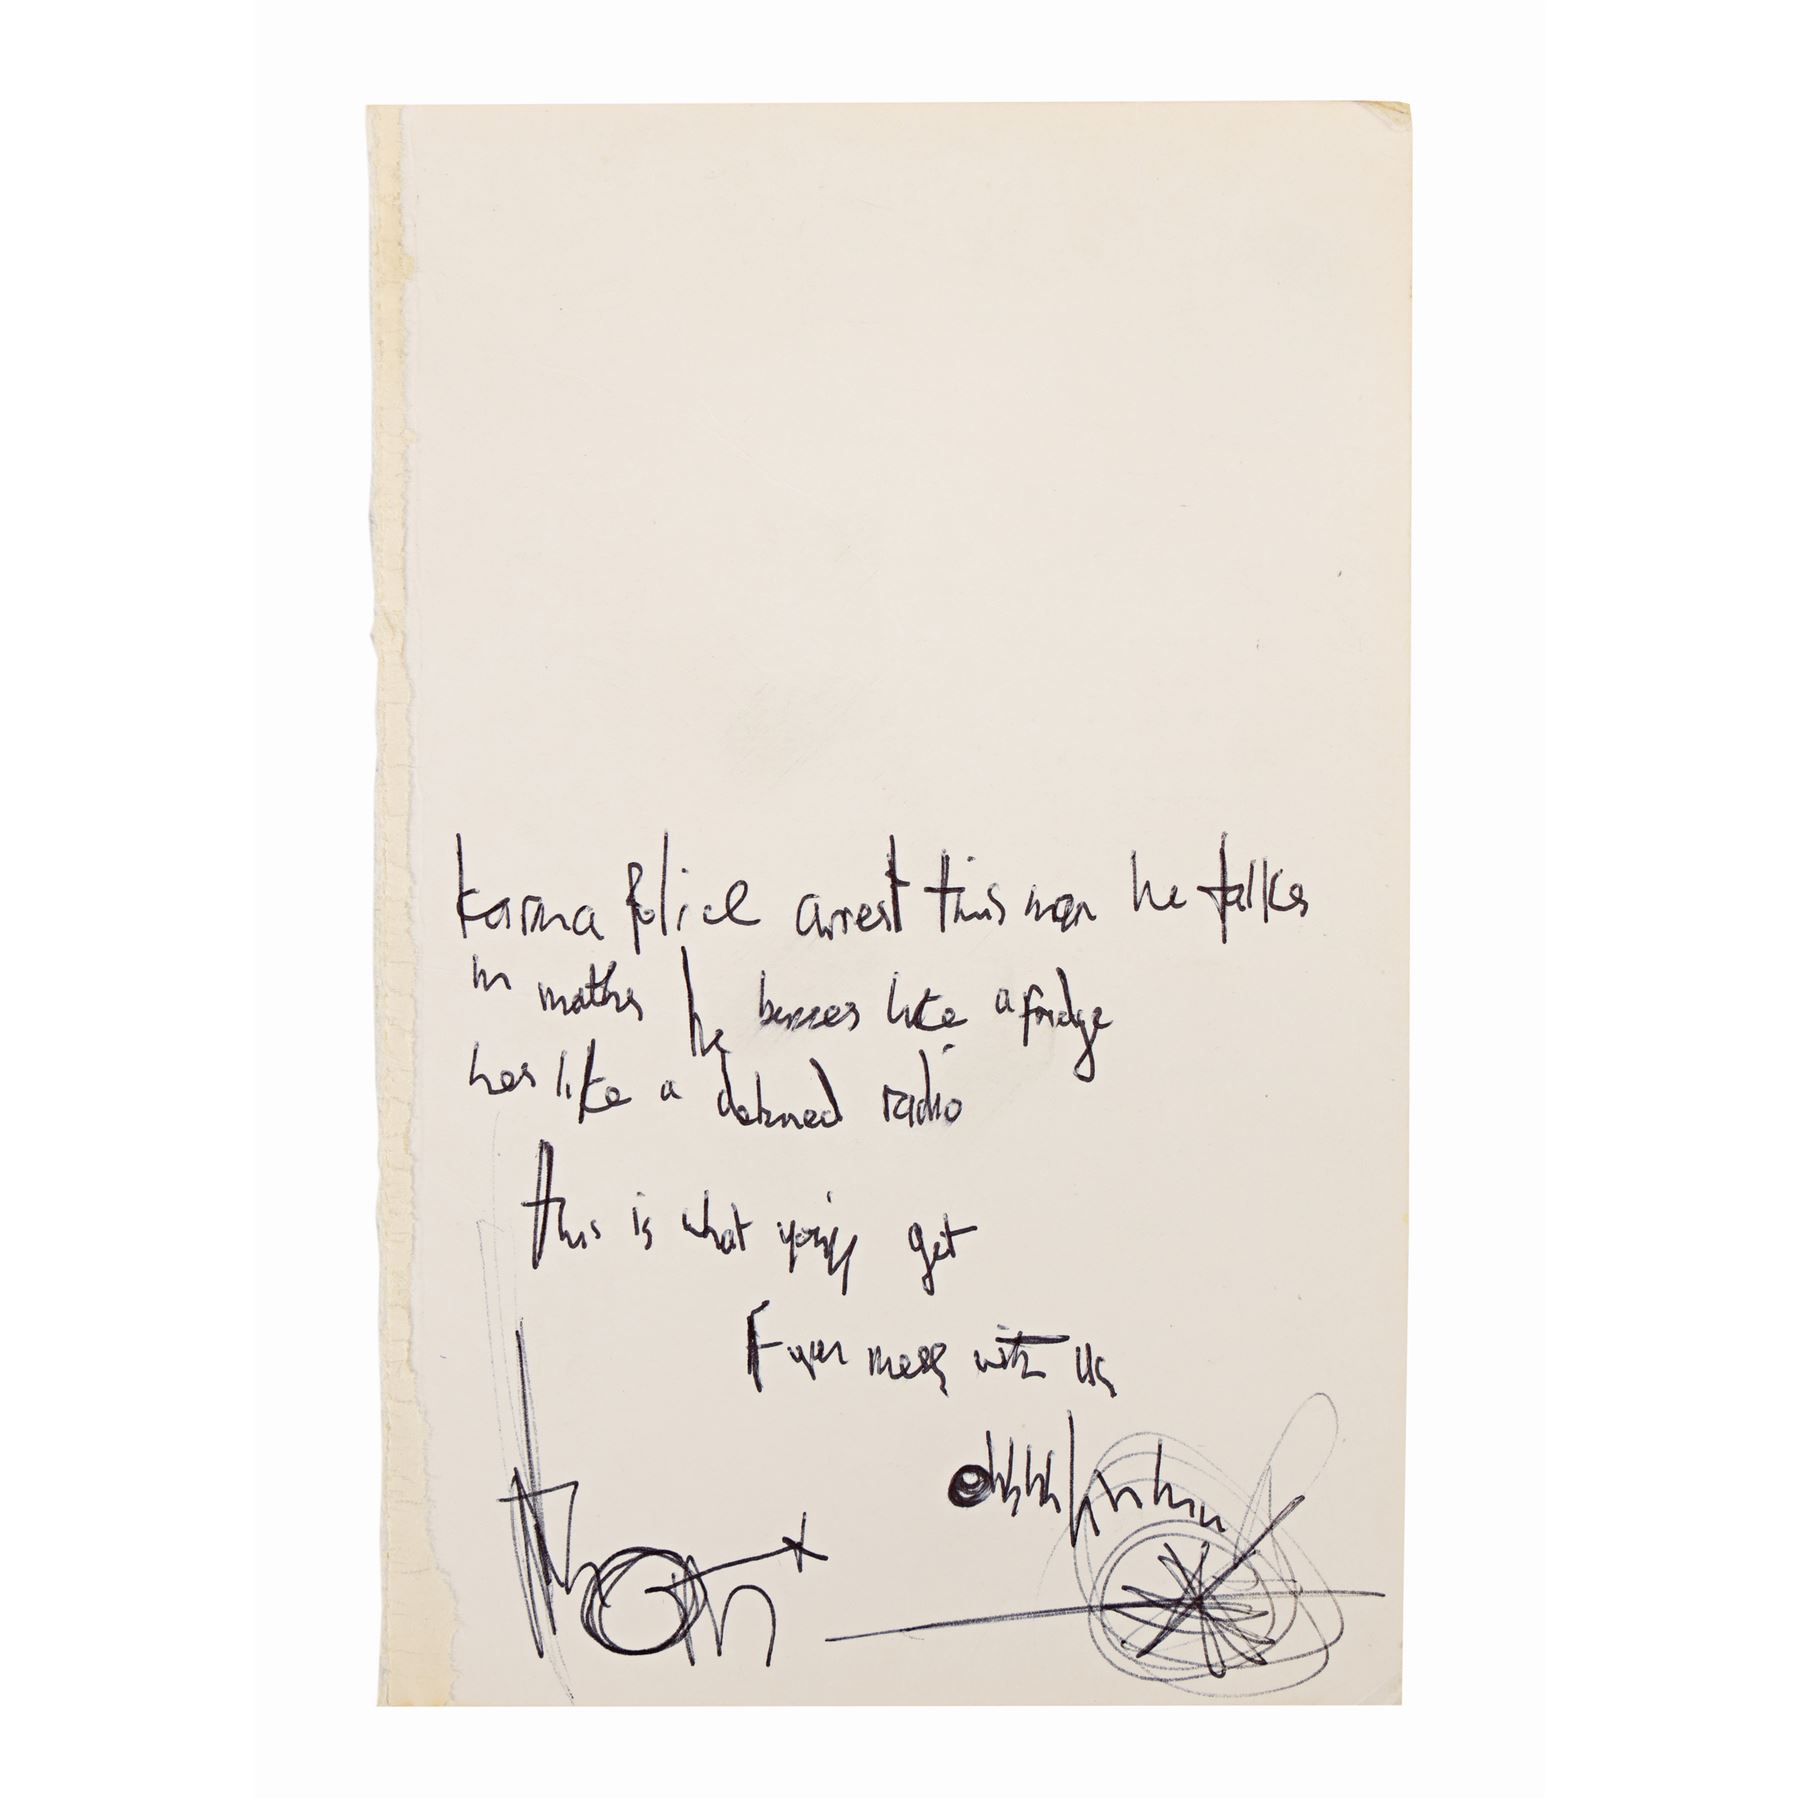 karma police arrest this man he talks
in maths he buzzes like a fridge
hes like a detuned radio
this is what you'll get
F you mess with us
thom x